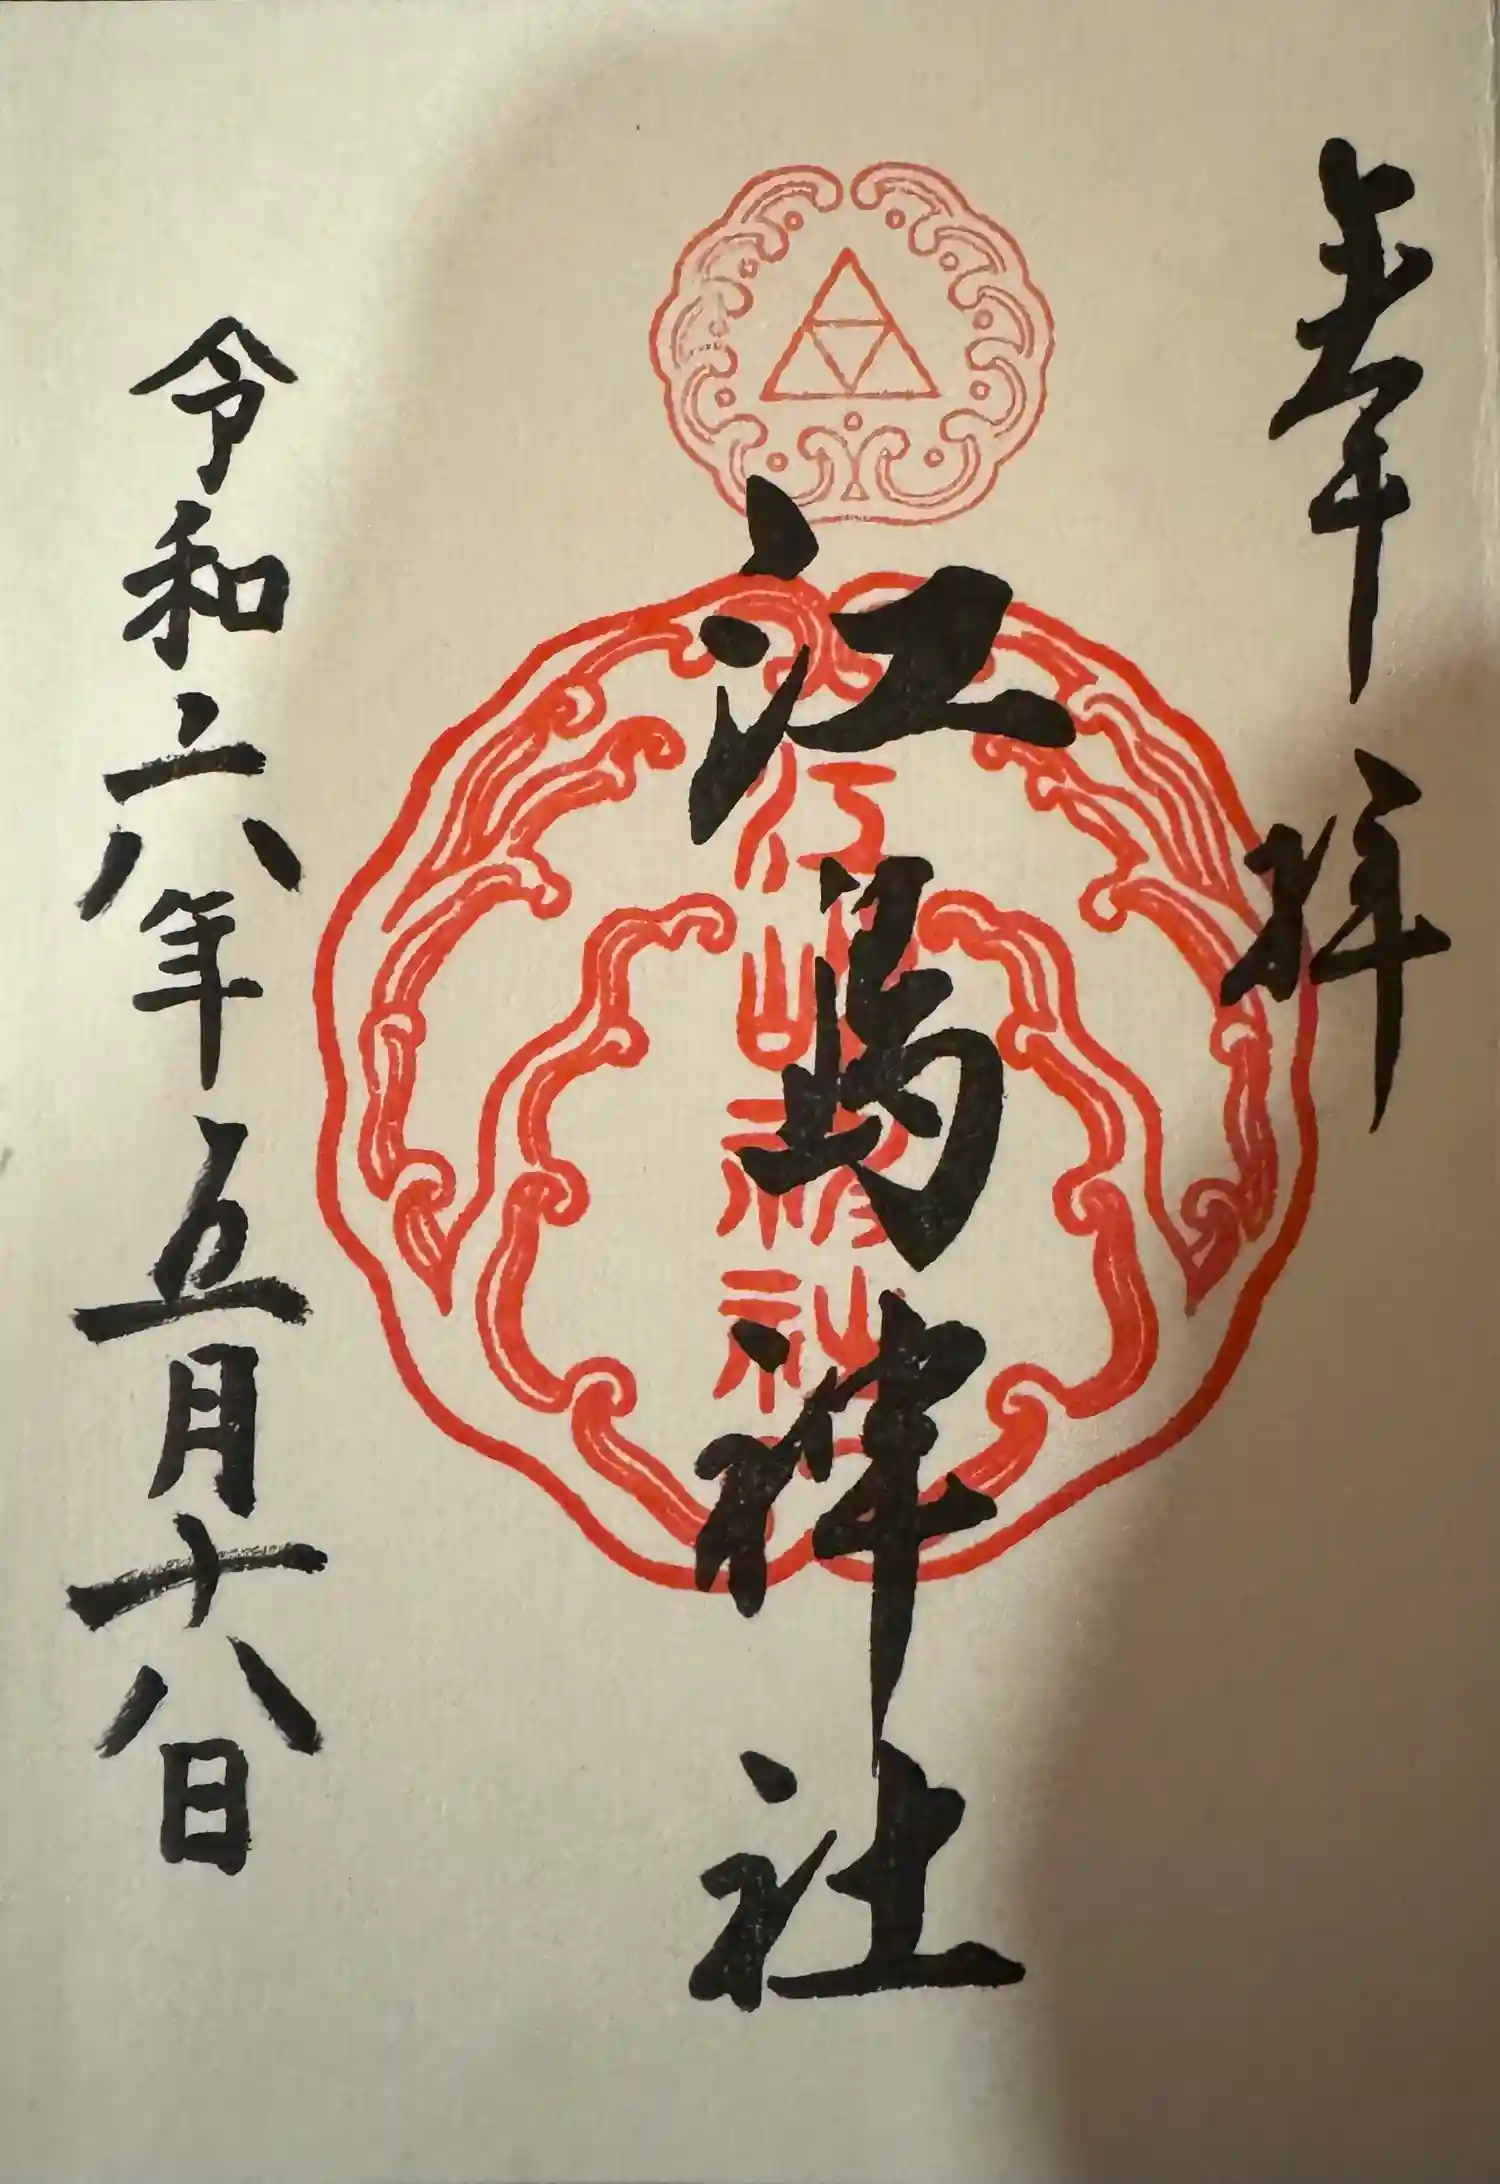 奉拝
江島神社
江島神社
令和六年五月十八日